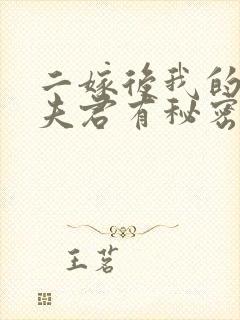 二嫁後我的
夫君有秘密
王茗